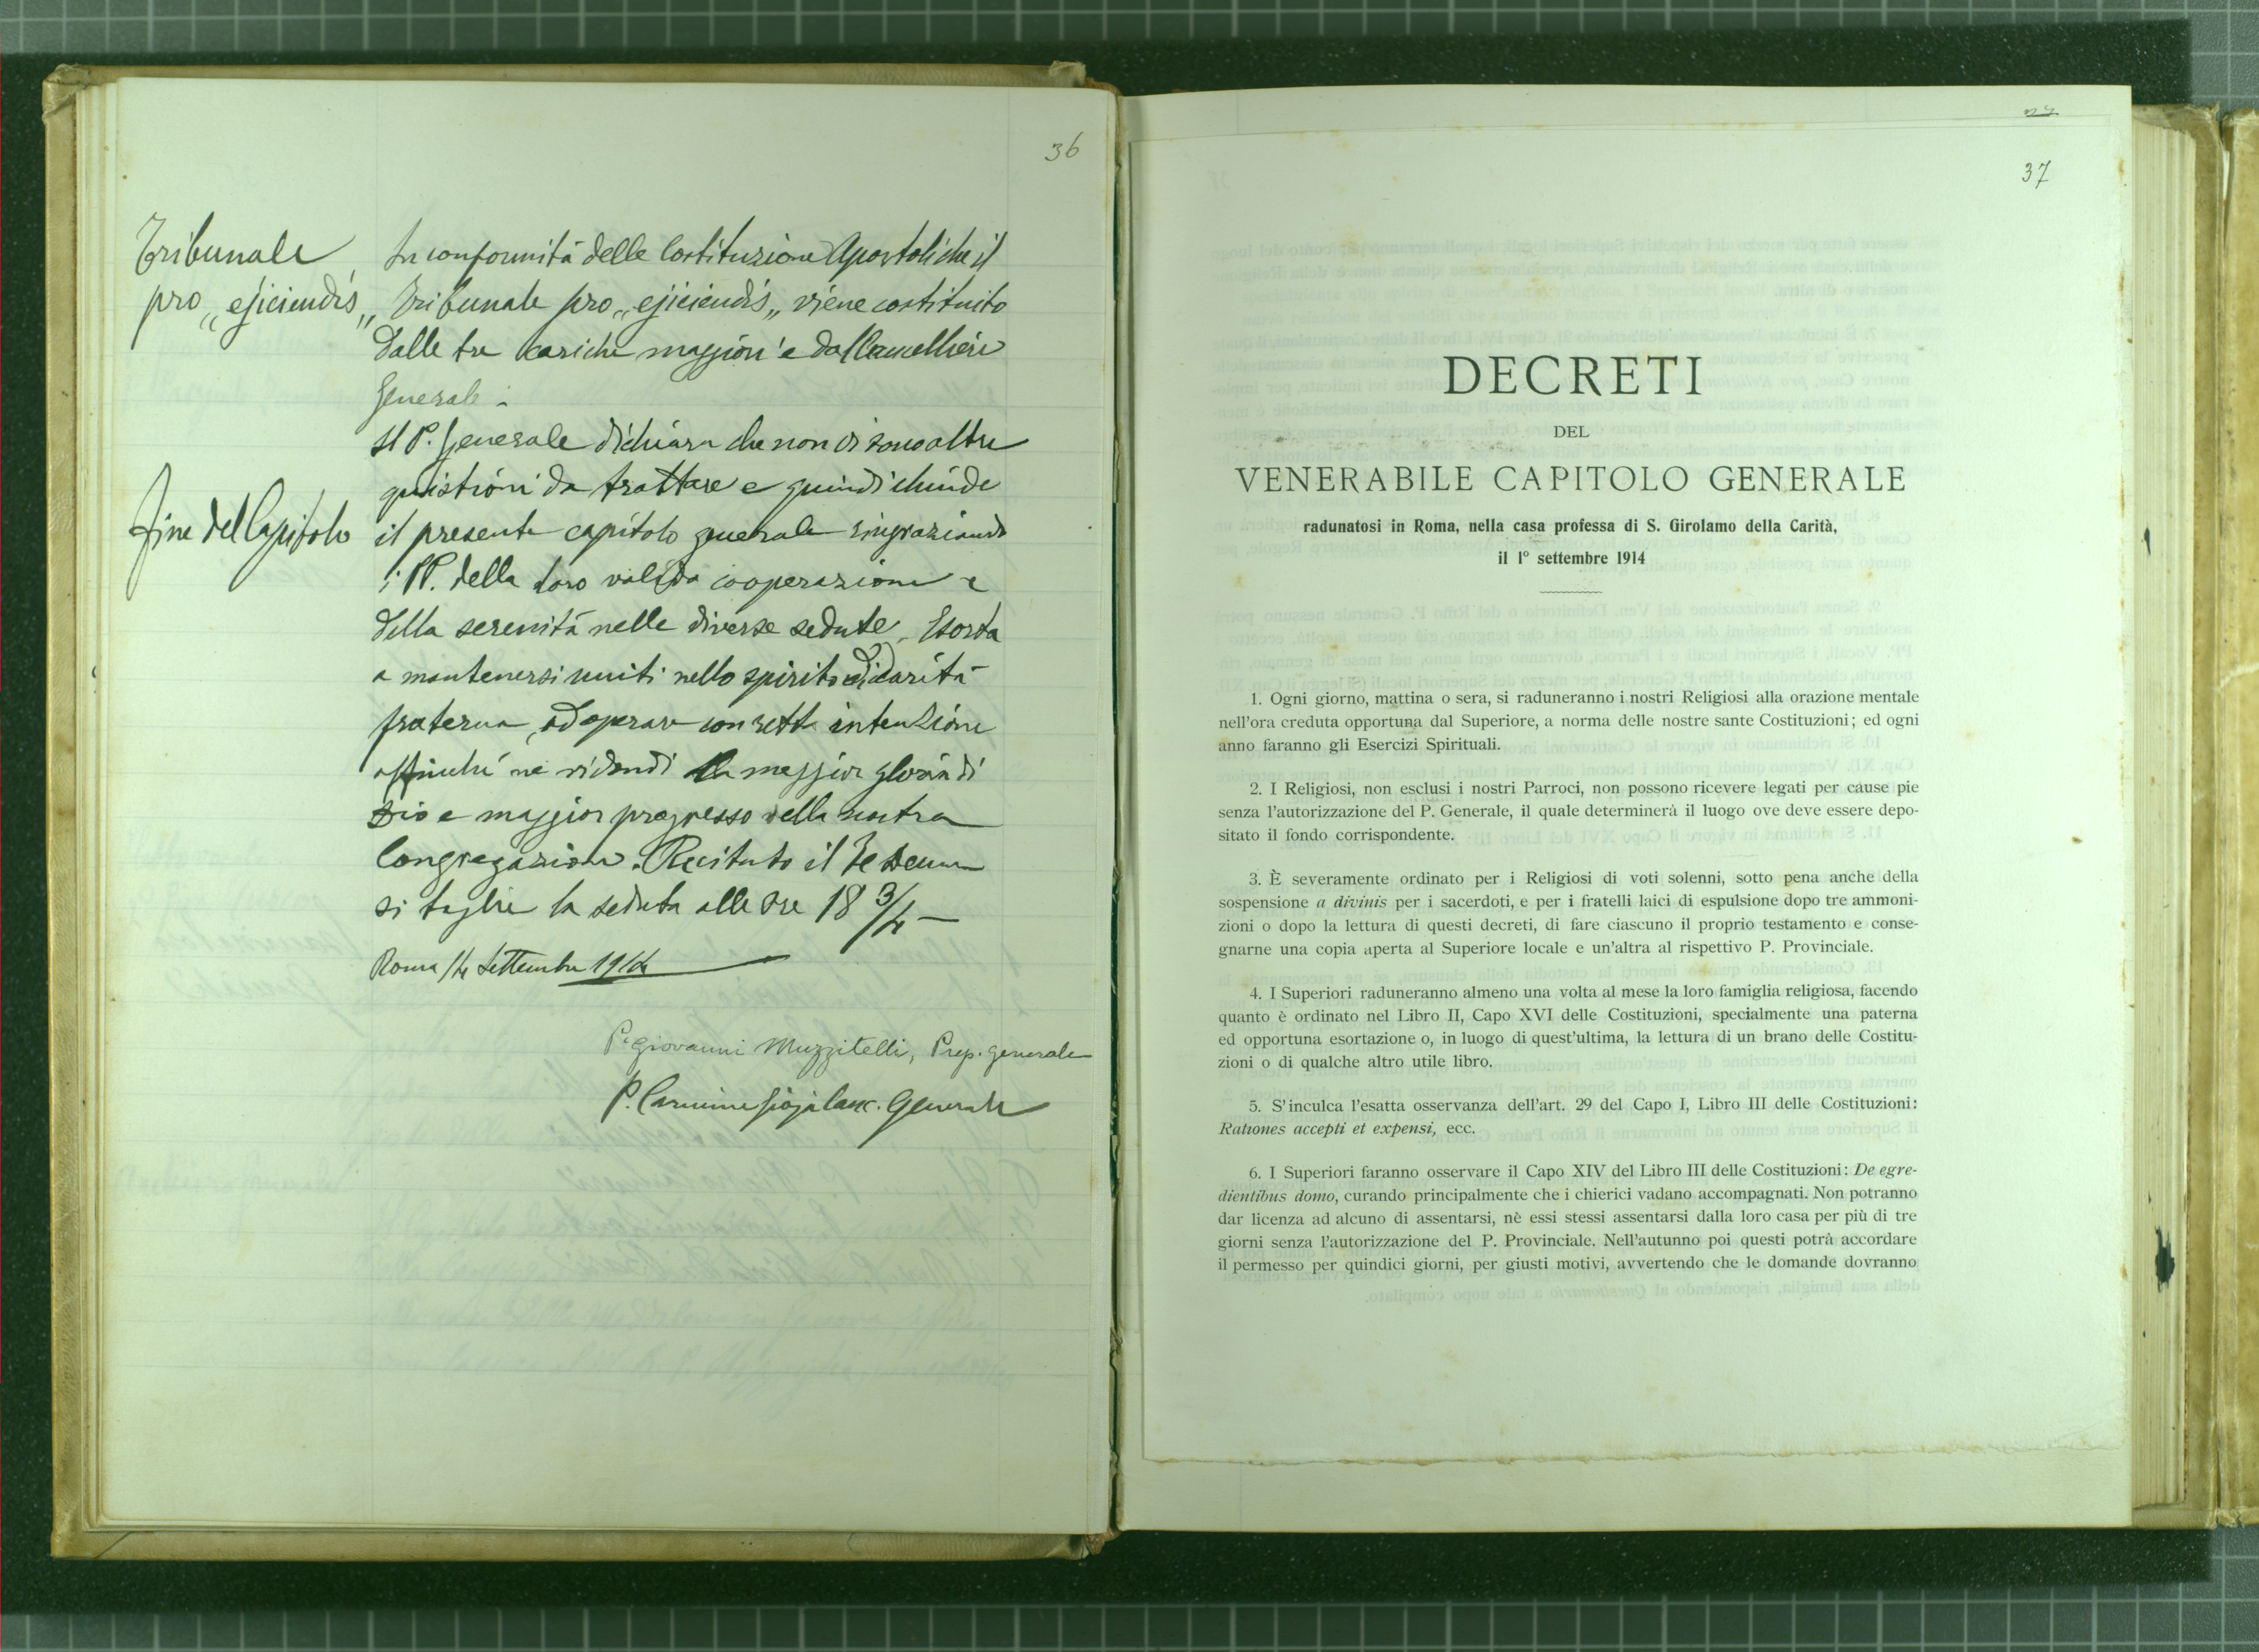 36
Tribunale
pro „ejiciendis„
In conformità delle Costituzione Apostoliche il
Tribunale pro „ejiciendis„ viene costituito
dalle tre cariche maggiori e dal Cancelliere
Generale.
Il P. Generale dichiara che non vi sono altre
quistioni da trattare e quindi chiude
Fine del Capitolo
il presente capitolo generale ringraziando
i PP. della loro valida cooperazione e
della serenità nelle diverse sedute. Esorta
a mantenersi uniti nello spirito di carità
fraterna, ad operare con retta intenzione
affinché ne ridondi la maggior gloria di
Dio e maggior progresso della nostra
Congregazione. Recitato il Te Deum
si toglie la seduta alle ore 18 3/4 —
Roma 14 Settembre 1914
P. Giovanni Muzzitelli, Prep. generale
P. Carmine Gioja Canc. Generale
37
DECRETI
DEL
VENERABILE CAPITOLO GENERALE
radunatosi in Roma, nella casa professa di S. Girolamo della Carità,
il 1° settembre 1914
1. Ogni giorno, mattina o sera, si raduneranno i nostri Religiosi alla orazione mentale
nell'ora creduta opportuna dal Superiore, a norma delle nostre sante Costituzioni; ed ogni
anno faranno gli Esercizi Spirituali.
2. I Religiosi, non esclusi i nostri Parroci, non possono ricevere legati per cause pie
senza l'autorizzazione del P. Generale, il quale determinerà il luogo ove deve essere depo-
sitato il fondo corrispondente.
3. È severamente ordinato per i Religiosi di voti solenni, sotto pena anche della
sospensione a divinis per i sacerdoti, e per i fratelli laici di espulsione dopo tre ammoni-
zioni o dopo la lettura di questi decreti, di fare ciascuno il proprio testamento e conse-
gnarne una copia aperta al Superiore locale e un'altra al rispettivo P. Provinciale.
4. I Superiori raduneranno almeno una volta al mese la loro famiglia religiosa, facendo
quanto è ordinato nel Libro II, Capo XVI delle Costituzioni, specialmente una paterna
ed opportuna esortazione o, in luogo di quest'ultima, la lettura di un brano delle Costitu-
zioni o di qualche altro utile libro.
5. S'inculca l'esatta osservanza dell'art. 29 del Capo I, Libro III delle Costituzioni:
Rationes accepti et expensi, ecc.
6. I Superiori faranno osservare il Capo XIV del Libro III delle Costituzioni: De egre-
dientibus domo, curando principalmente che i chierici vadano accompagnati. Non potranno
dar licenza ad alcuno di assentarsi, nè essi stessi assentarsi dalla loro casa per più di tre
giorni senza l'autorizzazione del P. Provinciale. Nell'autunno poi questi potrà accordare
il permesso per quindici giorni, per giusti motivi, avvertendo che le domande dovranno